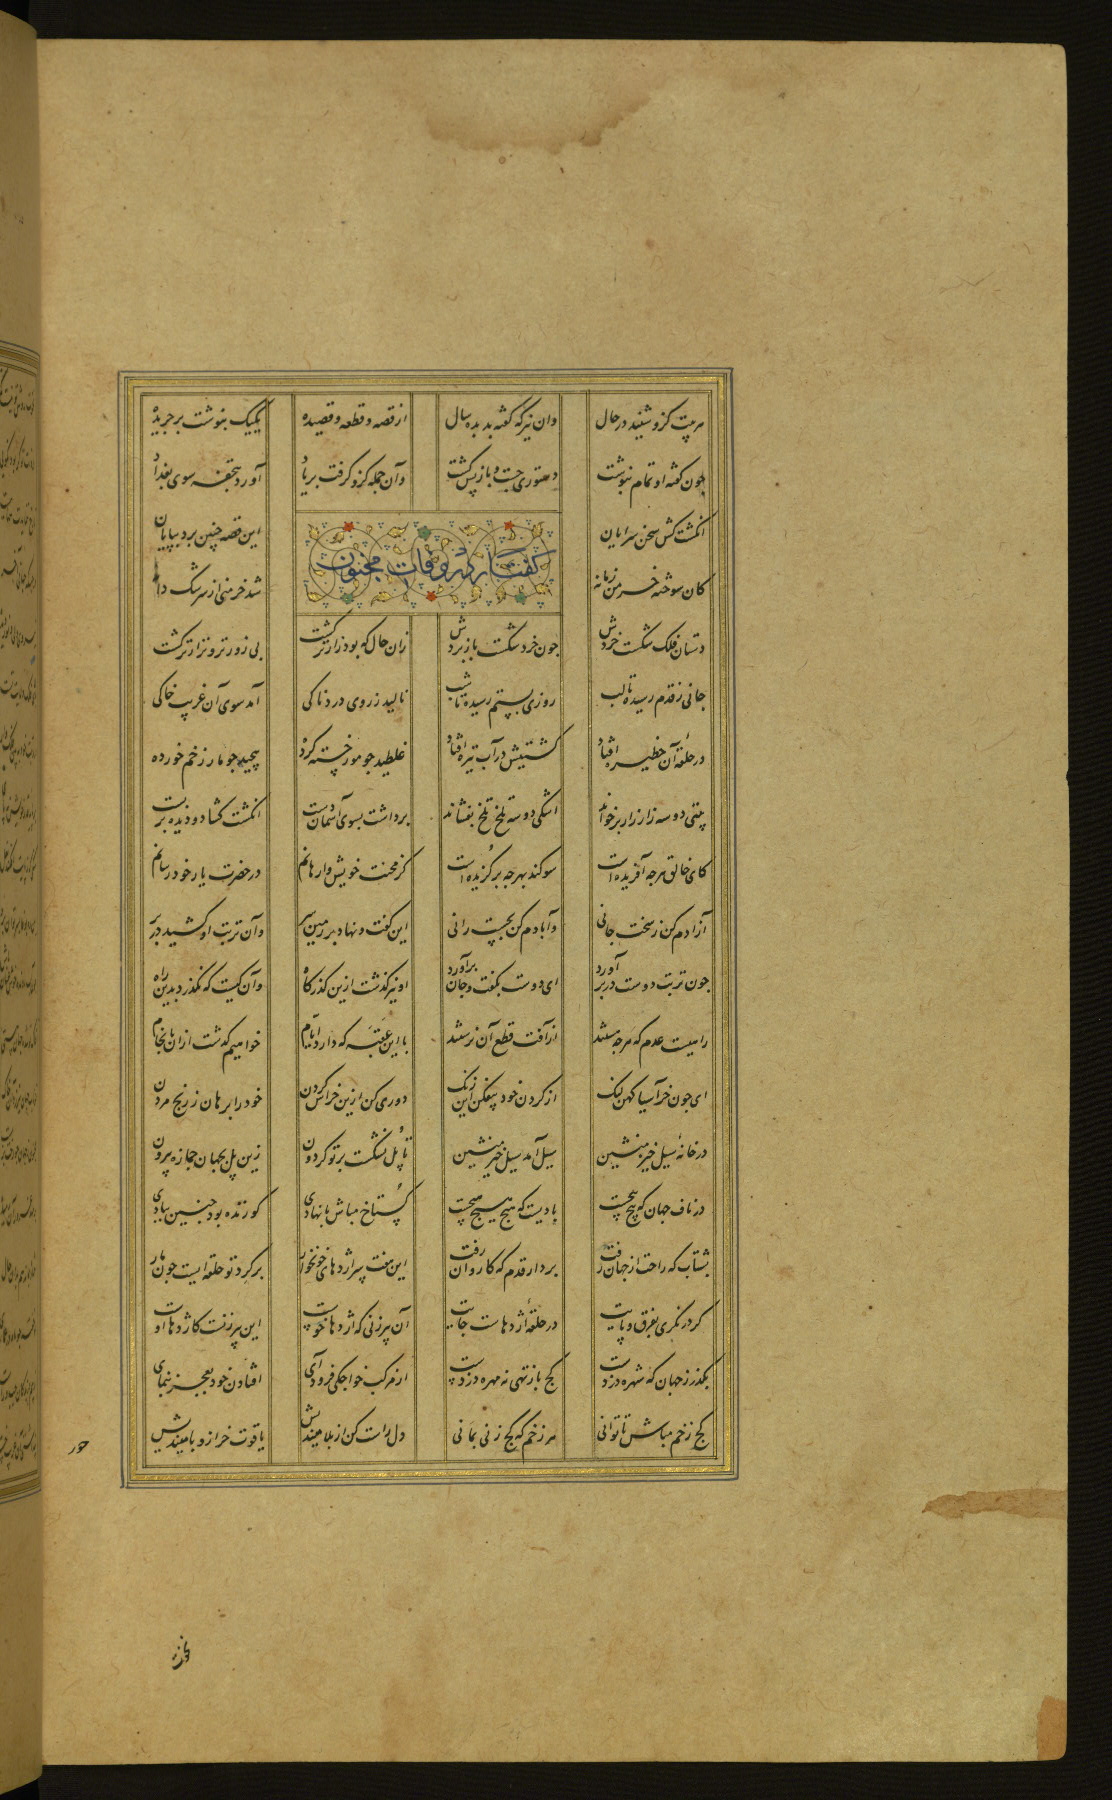 هر بیت کزو شنید در حال وان نیز که گفته بد بده سال از قصه و قطعه و قصیده یکیک بنوشت بر جریده
چون گفته او تمام بنوشت دستوری جست و باز پس گشت وآن جمله کزو گرفت بر یاد آورد بتحفه سوی بغداد
گفتار در وفات مجنون
انگشت کش سخن سرایان این قصه چنین برد بپایان
کان سوخته خرمن زمانه شد خرمنی از سرشک دانه
دستان فلک شکست خردش چون خرد شکست باز بردش زان حال که بود زارتر گشت بی زورتر و نزارتر گشت
جانی ز قدم رسیده تا لب روزی بستم رسیده تا شب نالید ز روی دردناکی آمد سوی آن غریب خاکی
در حلقه آن حظیره افتاد کشتیش در آب تیره افتاد غلطید چو مور خسته کرده پیچید چو مار زخم خورده
بیتی دو سه زار زار برخواند اشکی دو سه تلخ تلخ بفشاند برداشت بسوی آسمان دست انگشت گشاد و دیده بربست
کای خالق هرچه آفریده است سوگند بهرچه برگزیده است کز محنت خویش وارهانم در حضرت یار خود رسانم
آزادم کن ز سخت جانی وآبادم کن بچست رانی این گفت و نهاد بر زمین سر وآن تربت او کشید در بر
چون تربت دوست در بر آورد ای دوست بگفت و جان برآورد او نیز گذشت ازین گذرگاه وآن کیست که نگذرد بدین راه
راهیست عدم که هرچه هستند از آفت قطع آن نرستند با این عقبه که دارد ایام خواهیم گذشت ازان بانجام
ای چون خر آسیا کهن لنگ از گردن خود بیفکن این زنگ دوری کن ازین خراس گردون خود را برهان ز رنج مردن
در خانه سیل خیز منشین سیل آمد سیل خیز منشین تا پل نشکست بر تو گردون زین پل بجهان جمازه بیرون
در ناف جهان که پیچ پیچست بادیست که هیچ هیچ هیچست گستاخ مباش با نهادی کو زنده بود چنین ببادی
بشتاب که راحت از جهان رفت بردار قدم که کاروان رفت این هفت سر اژدهای خونخوار بر گرد تو حلقه ایست چون مار
گر در نگری بفرق و پایت در حلقه اژدهاست جایت آن پیرزنی که اژدها خوست این پیرزنست کاژدها اوست
بگذر ز جهان که شهره دزدست کج باز تهی نه مهره دزدست از مرکب خواجگی فرود آی افتادن خود بعجز بنمای
کج زخم مباش تا توانی هر زخم که کج زنی بمانی دل راست کن از بلا میندیش یاقوت خر از وبا میندیش